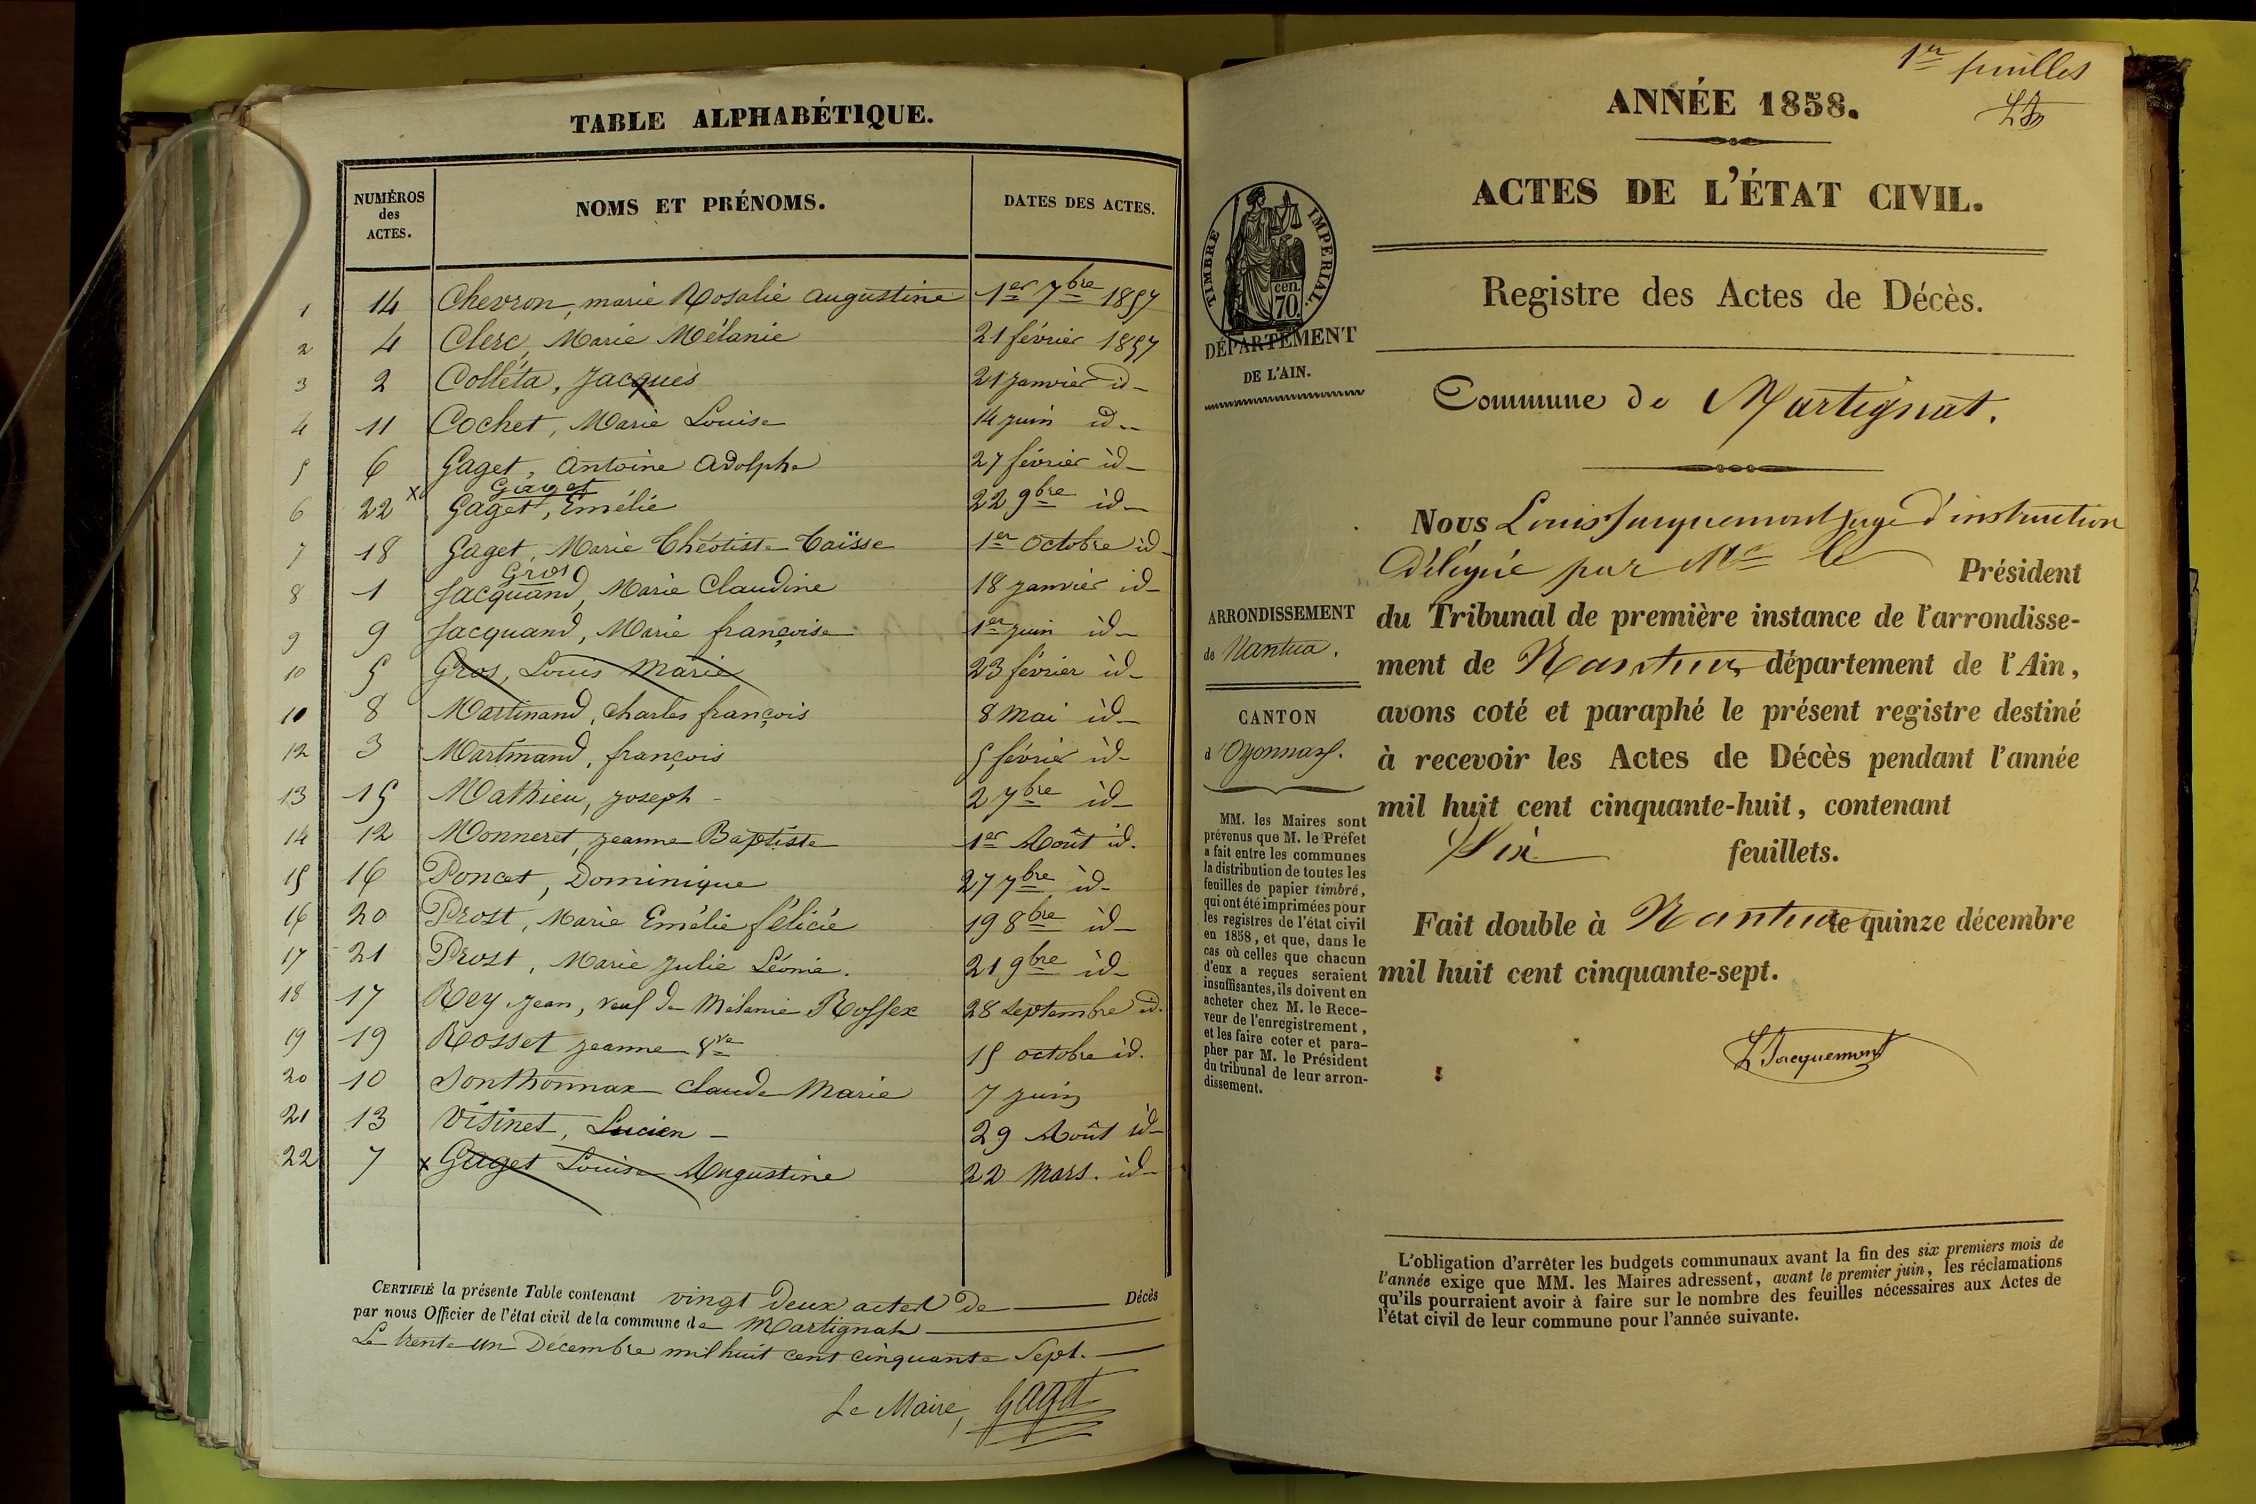 TABLE ALPHABÉTIQUE.
NUMÉROS des ACTES. NOMS ET PRÉNOMS. DATES DES ACTES.
1 14 Chevron, marie Rosalie augustine 1er 7bre 1857
2 4 Clerc, Marie Mélanie 21 février 1857
3 2 Colléta, Jacques 21 janvier id
4 11 Cochet, Marie Louise 14 juin id
5 6 Gaget, Antoine Adolphe 27 février id
Gaget
6 22 x Gaget, Emélie 22 9bre id
7 18 Gaget, Marie Théotiste Taïsse 1er Octobre id
Gros
8 1 Jacquand, Marie Claudine 18 janvier id
9 9 Jacquand, Marie françoise 1er juin id
10 5 Gros, Louis Marie 23 février id
10 8 Martinand, Charles françois 8 Mai id
12 3 Martinand, françois 5 février id
13 15 Mathieu, joseph 2 7bre id
14 12 Monneret, jeanne Baptiste 1er Août id.
15 16 Poncet, Dominique 27 7bre id
16 20 Prost, Marie Emélie félicie 19 8bre id
17 21 Prost, Marie Julie Léonie. 21 9bre id
18 17 Rey jean, veuf de Mélanie Rossex 28 septembre id.
19 19 Rosset jeanne 15 octobre id.
20 10 Sonthonnax Claude Marie 7 juin
21 13 Visinet, Lucien 29 Août id
22 7 x Gaget Louise Augustine 22 Mars. id
CERTIFIÉ la présente Table contenant vingt deux actes de Décès
par nous Officier de l'état civil de la commune de Martignat
Le trente un Décembre mil huit cent cinquante Sept.
Le Maire, Gaget
1er feuillet
ANNÉE 1858.
ACTES DE L'ÉTAT CIVIL.
TIMBRE IMPERIAL.
cen.
70.
DÉPARTEMENT
DE L'AIN.
Registre des Actes de Décès.
Commune de Martignat.
ARRONDISSEMENT
de Nantua.
CANTON
d'Oyonnax.
MM. les Maires sont
prévenus que M. le Préfet
a fait entre les communes
la distribution de toutes les
feuilles de papier timbré,
qui ont été imprimées pour
les registres de l'état civil
en 1858, et que, dans le
cas où celles que chacun
d'eux a reçues seraient
insuffisantes, ils doivent en
acheter chez M. le Rece-
veur de l'enregistrement,
et les faire coter et para-
pher par M. le Président
du tribunal de leur arron-
dissement.
Nous Louis Jacquemont juge d'instruction
Délégué par Mr le Président
du Tribunal de première instance de l'arrondisse-
ment de Nantua département de l'Ain,
avons coté et paraphé le présent registre destiné
à recevoir les Actes de Décès pendant l'année
mil huit cent cinquante-huit, contenant
Six feuillets.
Fait double à Nantua le quinze décembre
mil huit cent cinquante-sept.
L Jacquemont
L'obligation d'arrêter les budgets communaux avant la fin des six premiers mois de
l'année exige que MM. les Maires adressent, avant le premier juin, les réclamations
qu'ils pourraient avoir à faire sur le nombre des feuilles nécessaires aux Actes de
l'état civil de leur commune pour l'année suivante.